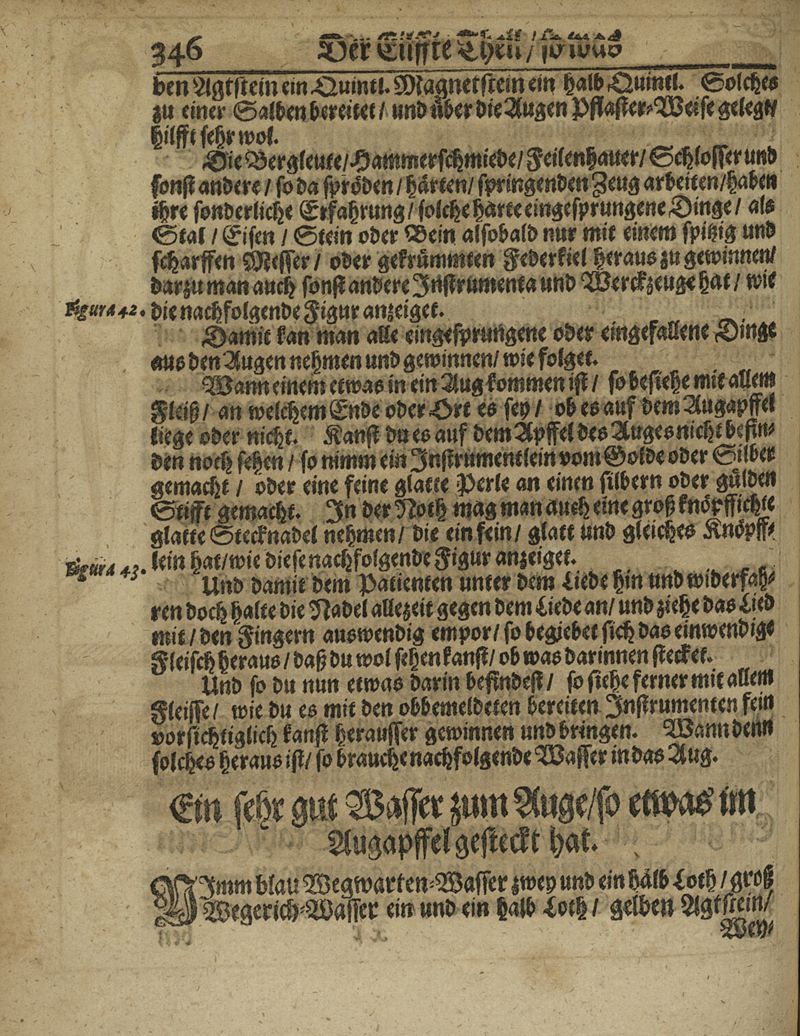 346 Der Eilffte Theil / so was
ben Agtstein ein Quintl. Magnetstein ein halb Quintl. Solches
zu einer Salben bereitet / und über die Augen Pflaster-Weise gelegt /
hilfft sehr wol.
Die Bergleute / Hammerschmiede / Feilenhauer / Schlosser und
sonst andere / so da spröden / härten / springenden Zeug arbeiten / haben
ihre sonderliche Erfahrung / solche harte eingesprungene Dinge / als
Stal / Eisen / Stein oder Bein alsobald nur mit einem spitzig und
scharffen Messer / oder gekrümmten Federkiel heraus zu gewinnen /
darzu man auch sonst andere Instrumenta und Werckzeuge hat / wie
Figura 42. die nachfolgende Figur anzeiget.
Damit kan man alle eingesprungene oder eingefallene Dinge
aus den Augen nehmen und gewinnen / wie folget.
Wann einem etwas in ein Aug kommen ist / so besiehe mit allem
Fleiß / an welchem Ende oder Ort es sey / ob es auf dem Augapffel
liege oder nicht. Kanst du es auf dem Apffel des Auges nicht befin-
den noch sehen / so nimm ein Instrumentlein vom Golde oder Silber
gemacht / oder eine feine glatte Perle an einen silbern oder gülden
Stifft gemacht. In der Noth mag man auch eine groß knöpffichte
glatte Stecknadel nehmen / die ein fein / glatt und gleiches Knöpff-
Figura 43. lein hat / wie diese nachfolgende Figur anzeiget.
Und damit dem Patienten unter dem Liede hin und widerfah-
ren doch halte die Nadel allezeit gegen dem Liede an / und ziehe das Lied
mit / den Fingern auswendig empor / so begiebet sich das einwendige
Fleisch heraus / daß du wol sehen kanst / ob was darinnen stecket.
Und so du nun etwas darin befindest / so siehe ferner mit allem
Fleisse / wie du es mit den obbemeldeten bereiten Instrumenten fein
vorsichtiglich kanst herausser gewinnen und bringen. Wann denn
solches heraus ist / so brauche nachfolgende Wasser in das Aug.
Ein sehr gut Wasser zum Auge / so etwas im
Augapffel gesteckt hat.
NImm blau Wegwarten-Wasser zwey und ein halb Loth / groß
Wegerich-Wasser ein und ein halb Loth / gelben Agtstein /
Wey-